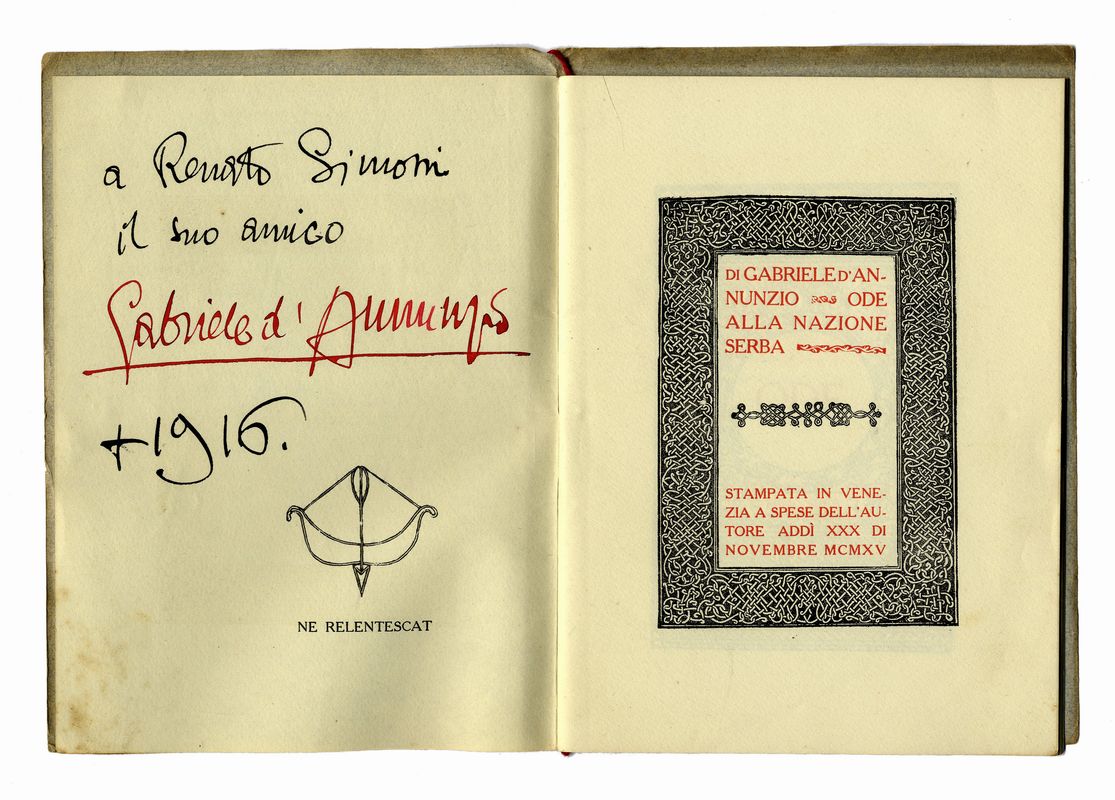 a Renato Simoni
il suo amico
Gabriele d'Annunzio
+1916.
NE RELENTESCAT
DI GABRIELE D'AN-
NUNZIO ODE
ALLA NAZIONE
SERBA
STAMPATA IN VENE-
ZIA A SPESE DELL'AU-
TORE ADDÌ XXX DI
NOVEMBRE MCMXV